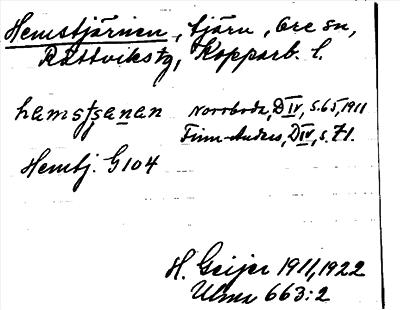 Hemstjärnen, tjärn, Ore sn,
Rättviks tg, Kopparb. l.
hamstsanan Norrboda, D IV, s. 65, 1911
Finn-Anders, D IV, s. 71.
Hemtj. G 104
H. Geijer 1911, 1922
Ulma 663:2